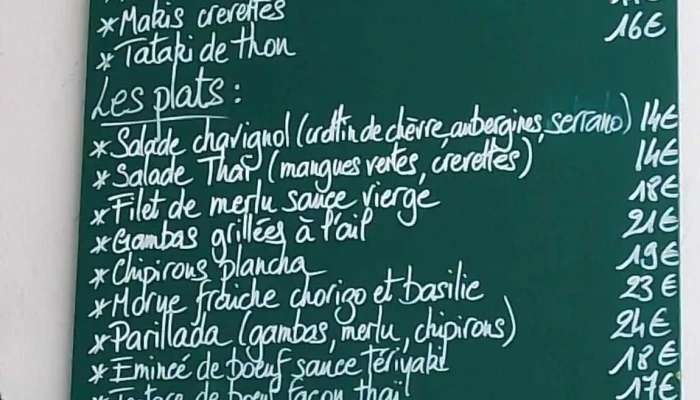 *Makis crevettes
*Tataki de thon 16€
Les plats :
*Salade chavignol (crottin de chèvre, aubergines, serrano) 14€
*Salade Thaï (mangues vertes, crevettes) 14€
*Filet de merlu sauce vierge 18€
*Gambas grillées à l'ail 21€
*Chipirons plancha 19€
*Morue fraîche chorizo et basilic 23€
*Parillada (gambas, merlu, chipirons) 24€
*Emincé de boeuf sauce tériyaki 18€
*Tartare de boeuf façon thaï 17€